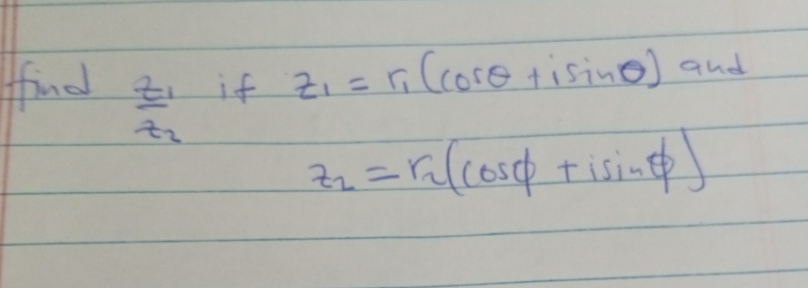 find z₁/z₂ if z₁ = r₁(cosθ + isinθ) and
z₂ = r₂(cosϕ + isinϕ)